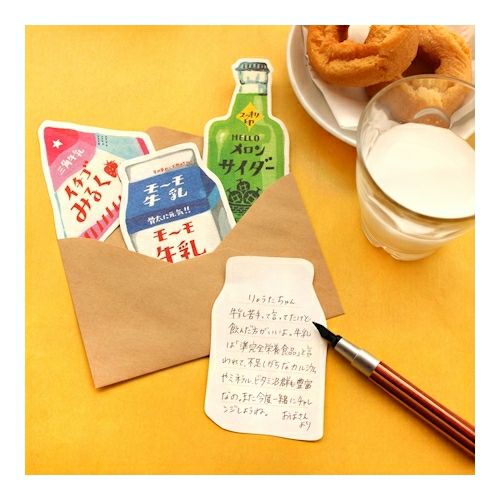 三角牛乳
イチゴ
みるく
モ〜モ
牛乳
骨太に元気!!
モ〜モ
牛乳
スッキリ
HELLO
メロン
サイダー
りょうたちゃん
牛乳苦手って言ってたけど、
飲んだ方がいいよ。牛乳
は「準完全栄養食品」と言
われて、不足しがちなカルシウム
やミネラル、ビタミンB群も豊富
なの。また今度一緒にチャレ
ンジしようね。
おばさん
より